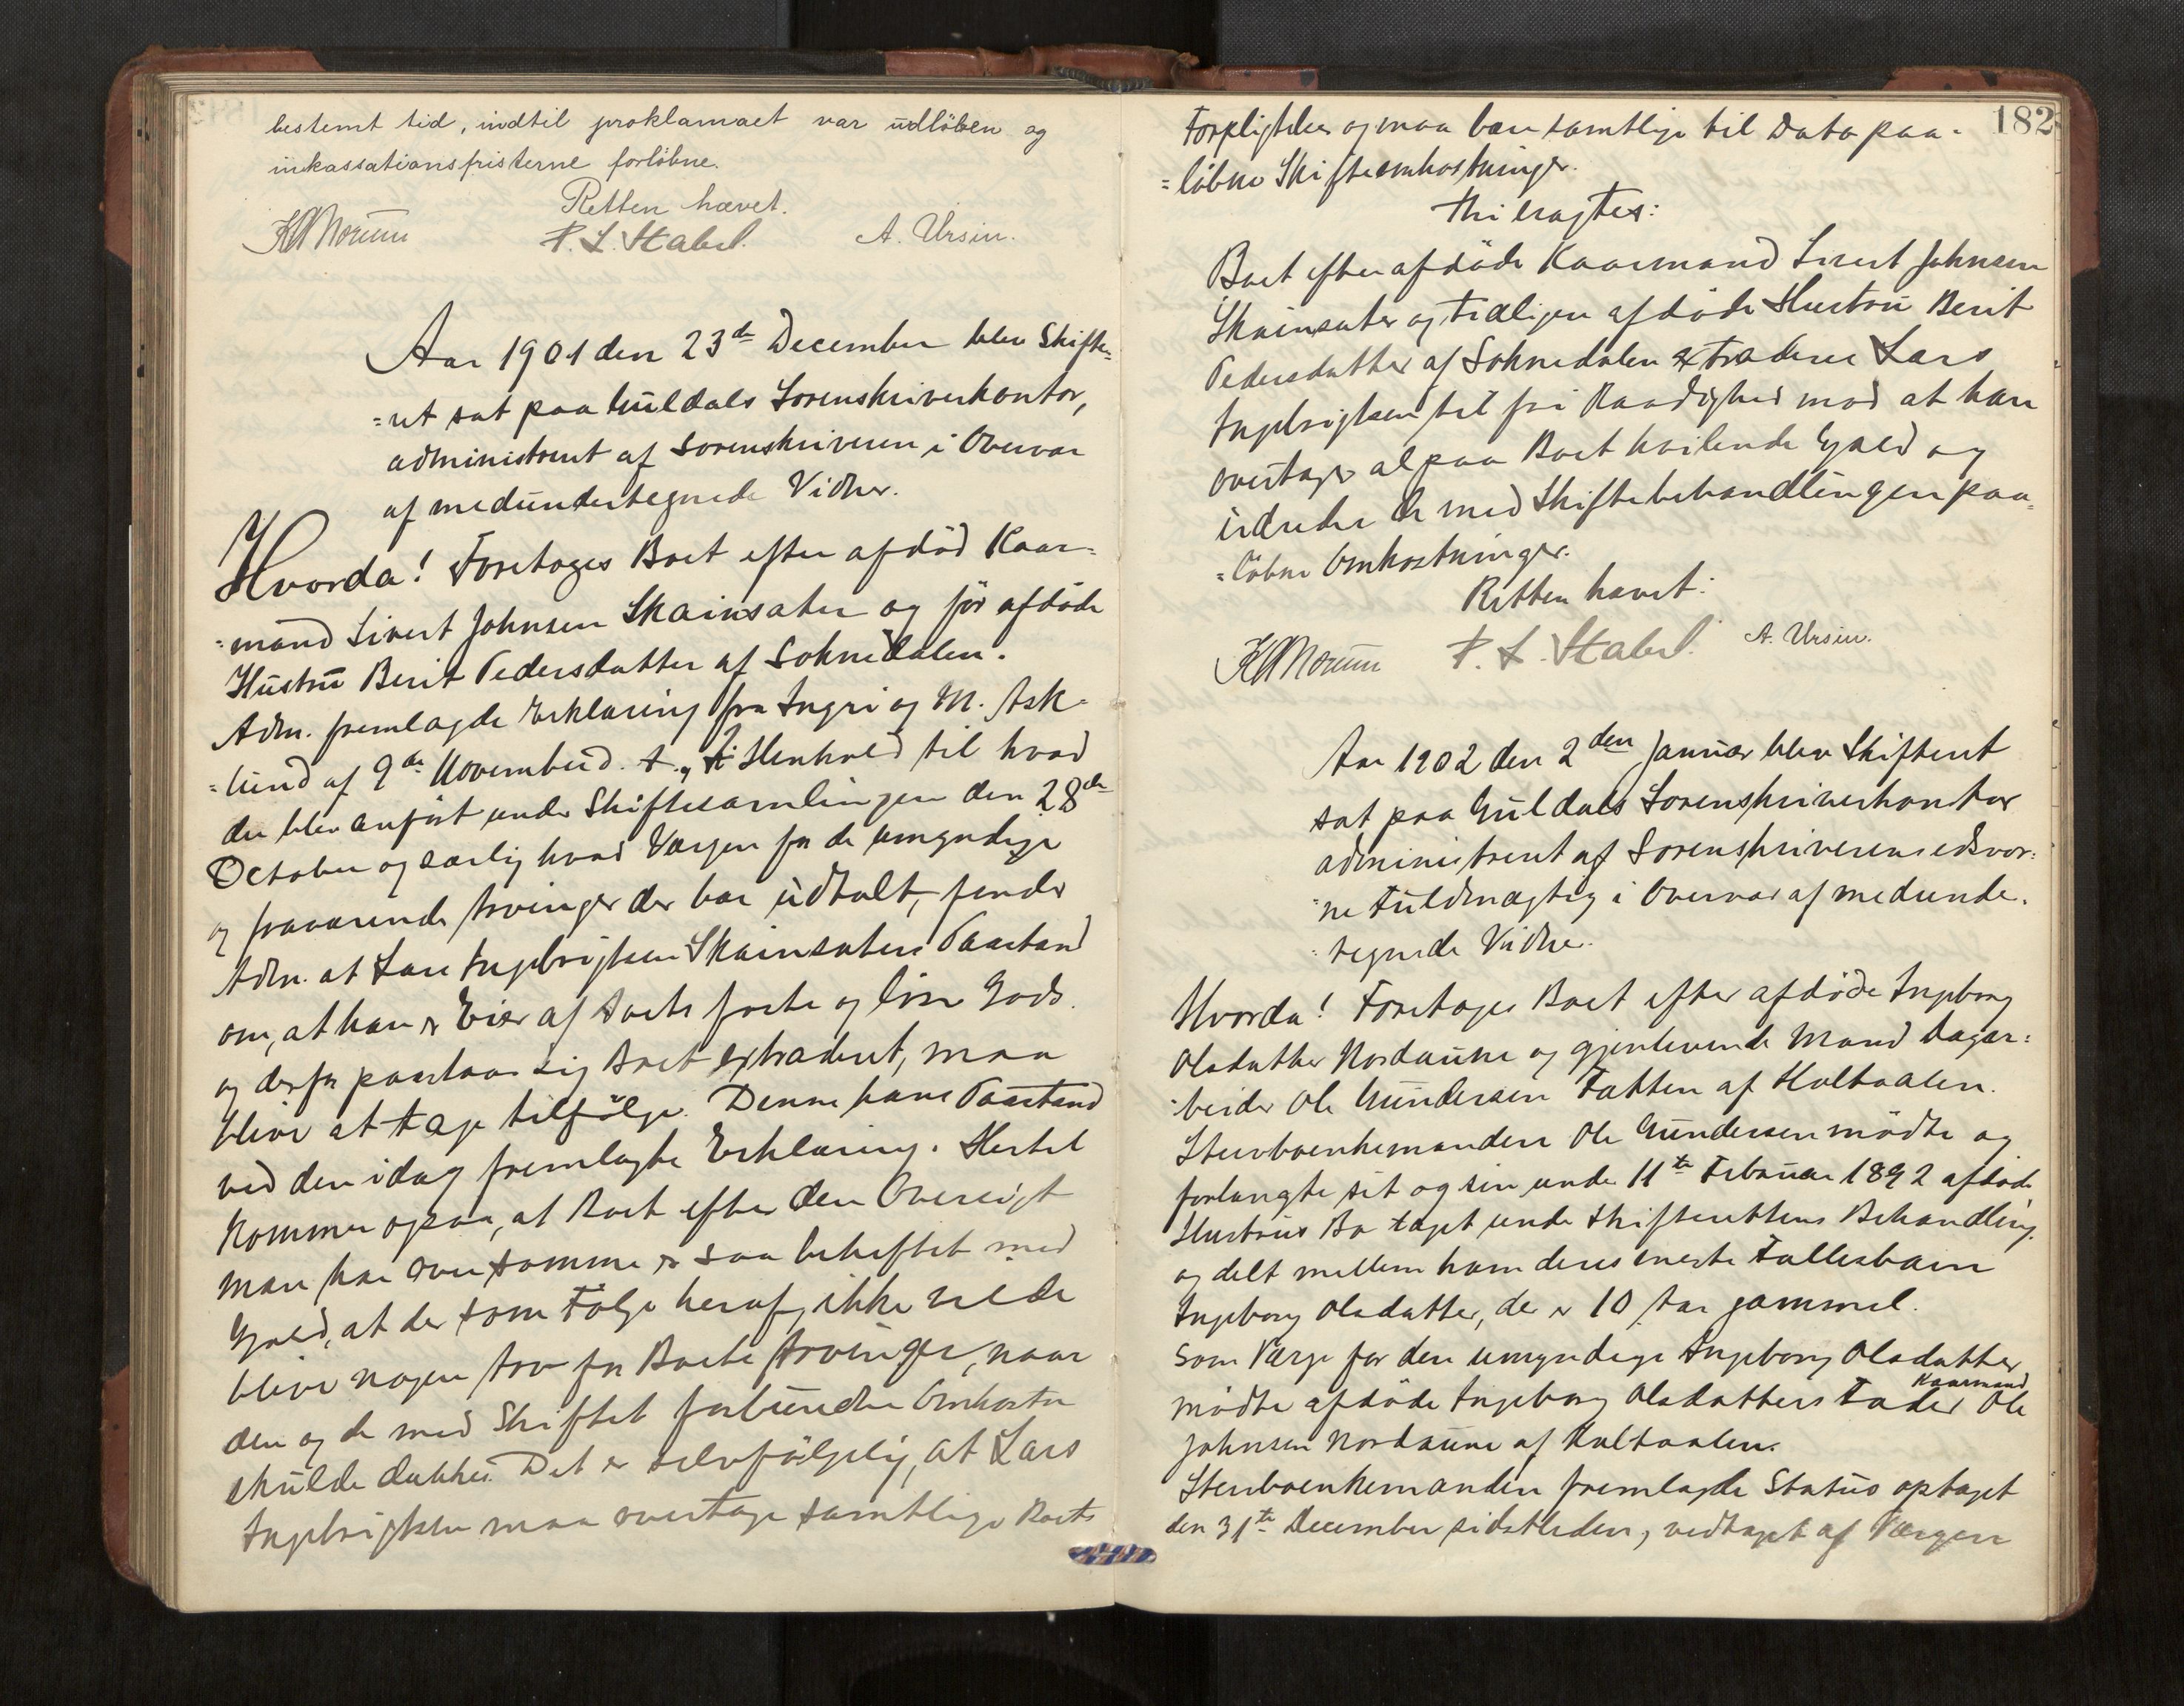 bestemt tid, indtil proklamaet var udløben og
inkassationsfristerne forløbne.
Retten hævet.
P. L. Stabel. A. Ursin.
Aar 1901 den 23de December blev Skifte-
=ret sat paa Guldals Sorenskriverkontor,
administreret af Sorenskriveren i Overvær
af medundertegnede Vidner.
Hvorda! Foretoges Boet efter afdød Kaar=
=mand Sivert Johnsen Skainsæter og før afdøde
Hustru Berit Pedersdatter af Soknedalen.
Adm. fremlagde Erklæring fra Ingri og M. Ask-
=lund af 9de November d. A., Henhold til hvad
der blev anført under Skiftesamlingen den 28de
October og særlig hvad Værgen for de umyndige
og fraværende Arvinger der har udtalt, finder
Adm. at Lars Ingebrigtsen Skainsæters Paastand
om, at han er Eier af Boets faste og løse Gods
og derfor paastaar sig Boet extraderet, maa
blive at tage tilfølge. Denne hans Paastand
ved den idag fremlagte Erklæring. Hertil
kommer ogsaa, at Boet efter den Oversigt
man har over samme er saa beheftet med
Gjæld, at der som Følge heraf ikke vilde
blive nogen Arv for Boets Arvinger, naar
den og de med Skiftet forbundne Omkostn
skulde dækkes. Det er selvfølgelig, at Lars
Ingebrigtsen maa overtage samtlige Boets
182
Forpligtelser og maa bære samtlige til Dato paa-
=løbne Skifteomkostninger.
Thi eragtes:
Boet efter afdøde Kaarmand Sivert Johnsen
Skainsæter og tidligere afdøde Hustru Berit
Pedersdatter af Soknedalen extraderes Lars
Ingebrigtsen til fri Raadighed mod at han
overtager al paa Boet hvilende Gjæld og
udreder de med Skiftebehandlingen paa=
=løbne Omkostninger.
Retten hævet:
P. L. Stabel. A. Ursin.
Aar 1902 den 2den Januar blev Skifteret
sat paa Guldals Sorenskriverkontor
administreret af Sorenskriverens edsvor=
=ne Fuldmægtig i Overvær af medunder-
=tegnede Vidner.
Hvorda! Foretoges Boet efter afdøde Ingeborg
Olsdatter Nordaune og gjenlevende Mand Dagar=
=beider Ole Gundersen Tatten af Holtaalen.
Stervboenkemanden Ole Gundersen mødte og
forlangte sit og sin under 11te Februar 1892 afdøde
Hustrus Bo taget under Skifterettens Behandling
og delt mellem ham deres eneste Fællesbarn
Ingeborg Olsdatter, der er 10 Aar gammel.
Som Værge for den umyndige Ingeborg Olsdatter
mødte afdøde Ingeborg Olsdatters Fader Kaarmand Ole
Johnsen Nordaune af Holtaalen.
Stervboenkemanden fremlagde Status optaget
den 31te December sidstleden, vedtaget af Værgen